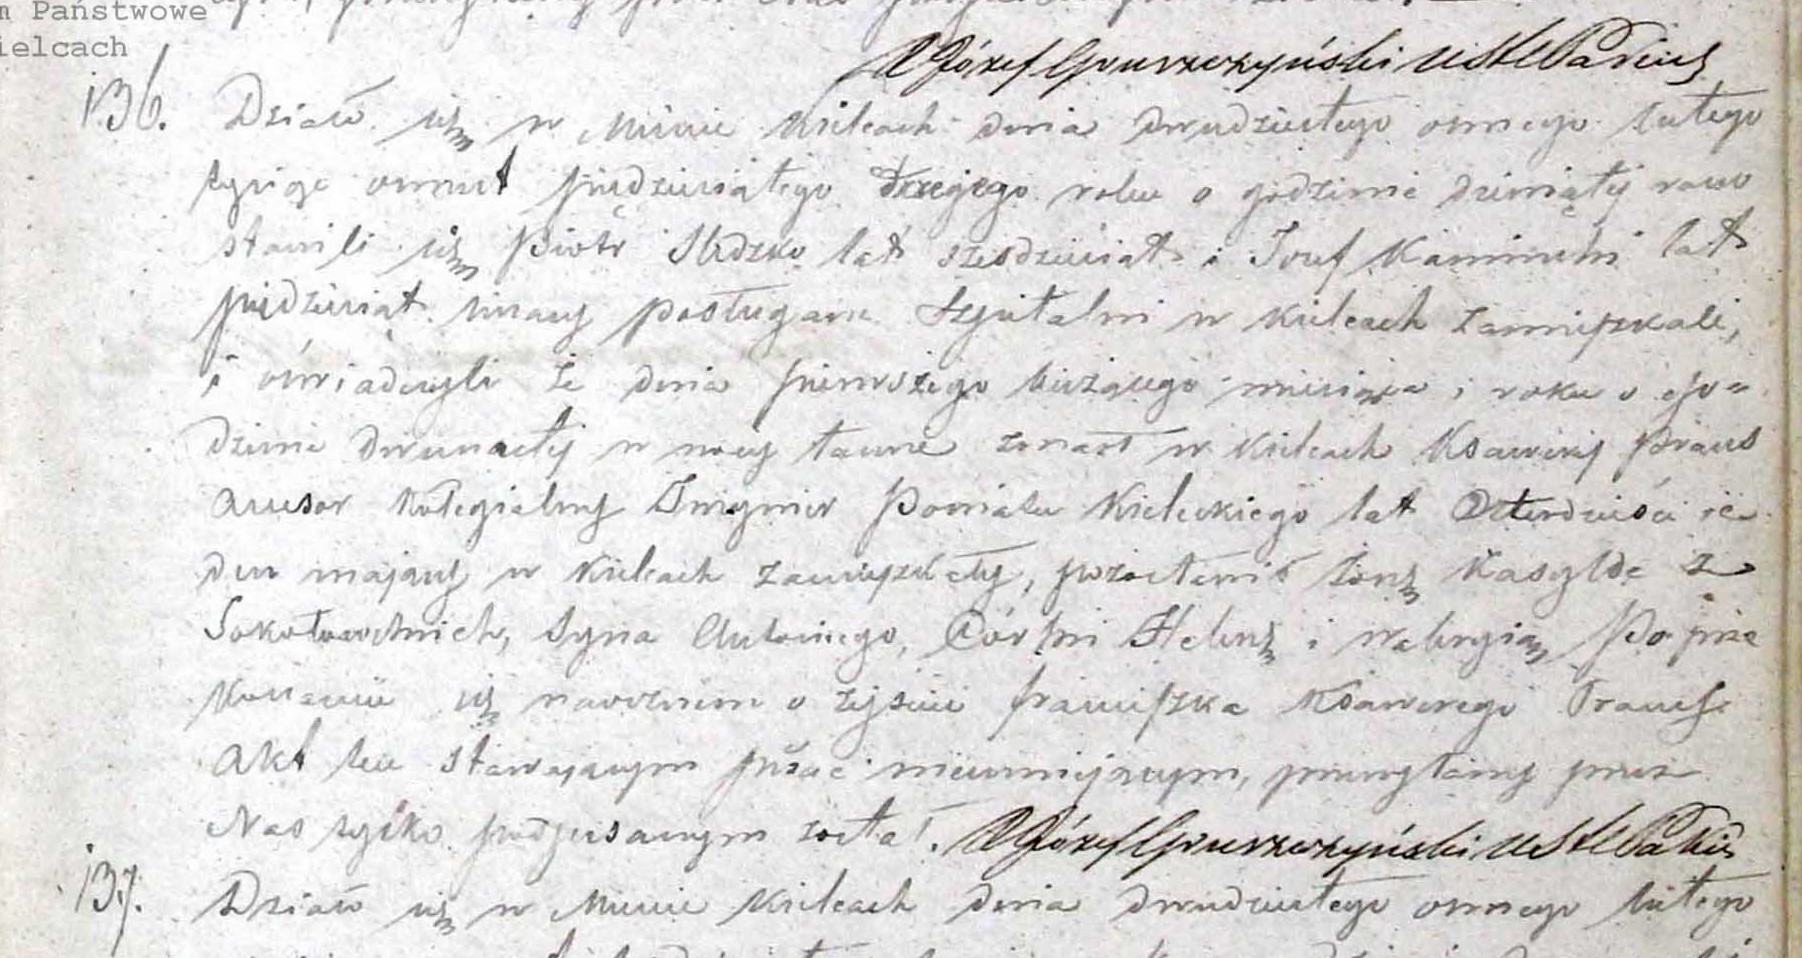 n Państwowe
ielcach
X Józef Gruszczyński
136. Działo się w Mieście Kielcach dnia dwudziestego osmego lutego
tysiąc osmset piędziesiątego trzeciego roku o godzinie dziewiąty rano
stawili się Piotr lat szesdziesiąt i Jozef Kaminski lat
piędziesiąt maiący posługacze Szpitalni w Kielcach zamieszkali,
i oswiadczyli że dnia pierwszego bieżącego miesiąca i roku o go=
dzinie dwunasty w nocy zmarł w Kielcach Ksawery Praus
Assesor Kolegialny Inżynier Powiatu Kieleckiego lat Czterdzieści ie
den maiący w Kielcach zamieszkały, pozostawił żonę Kasyldę z
Sokołowskich, Syna Antoniego, Córki Helenę i Waleryią Po prze
konaniu się naocznem o zejsciu Franciszka Ksawerego Praus
Akt ten stawaiącym pisać nieumieiącym, przeczytany przez
Nas tylko podpisanym został. X Józef Gruszczyński
137. Działo się w Mieście Kielcach dnia dwudziestego osmego lutego